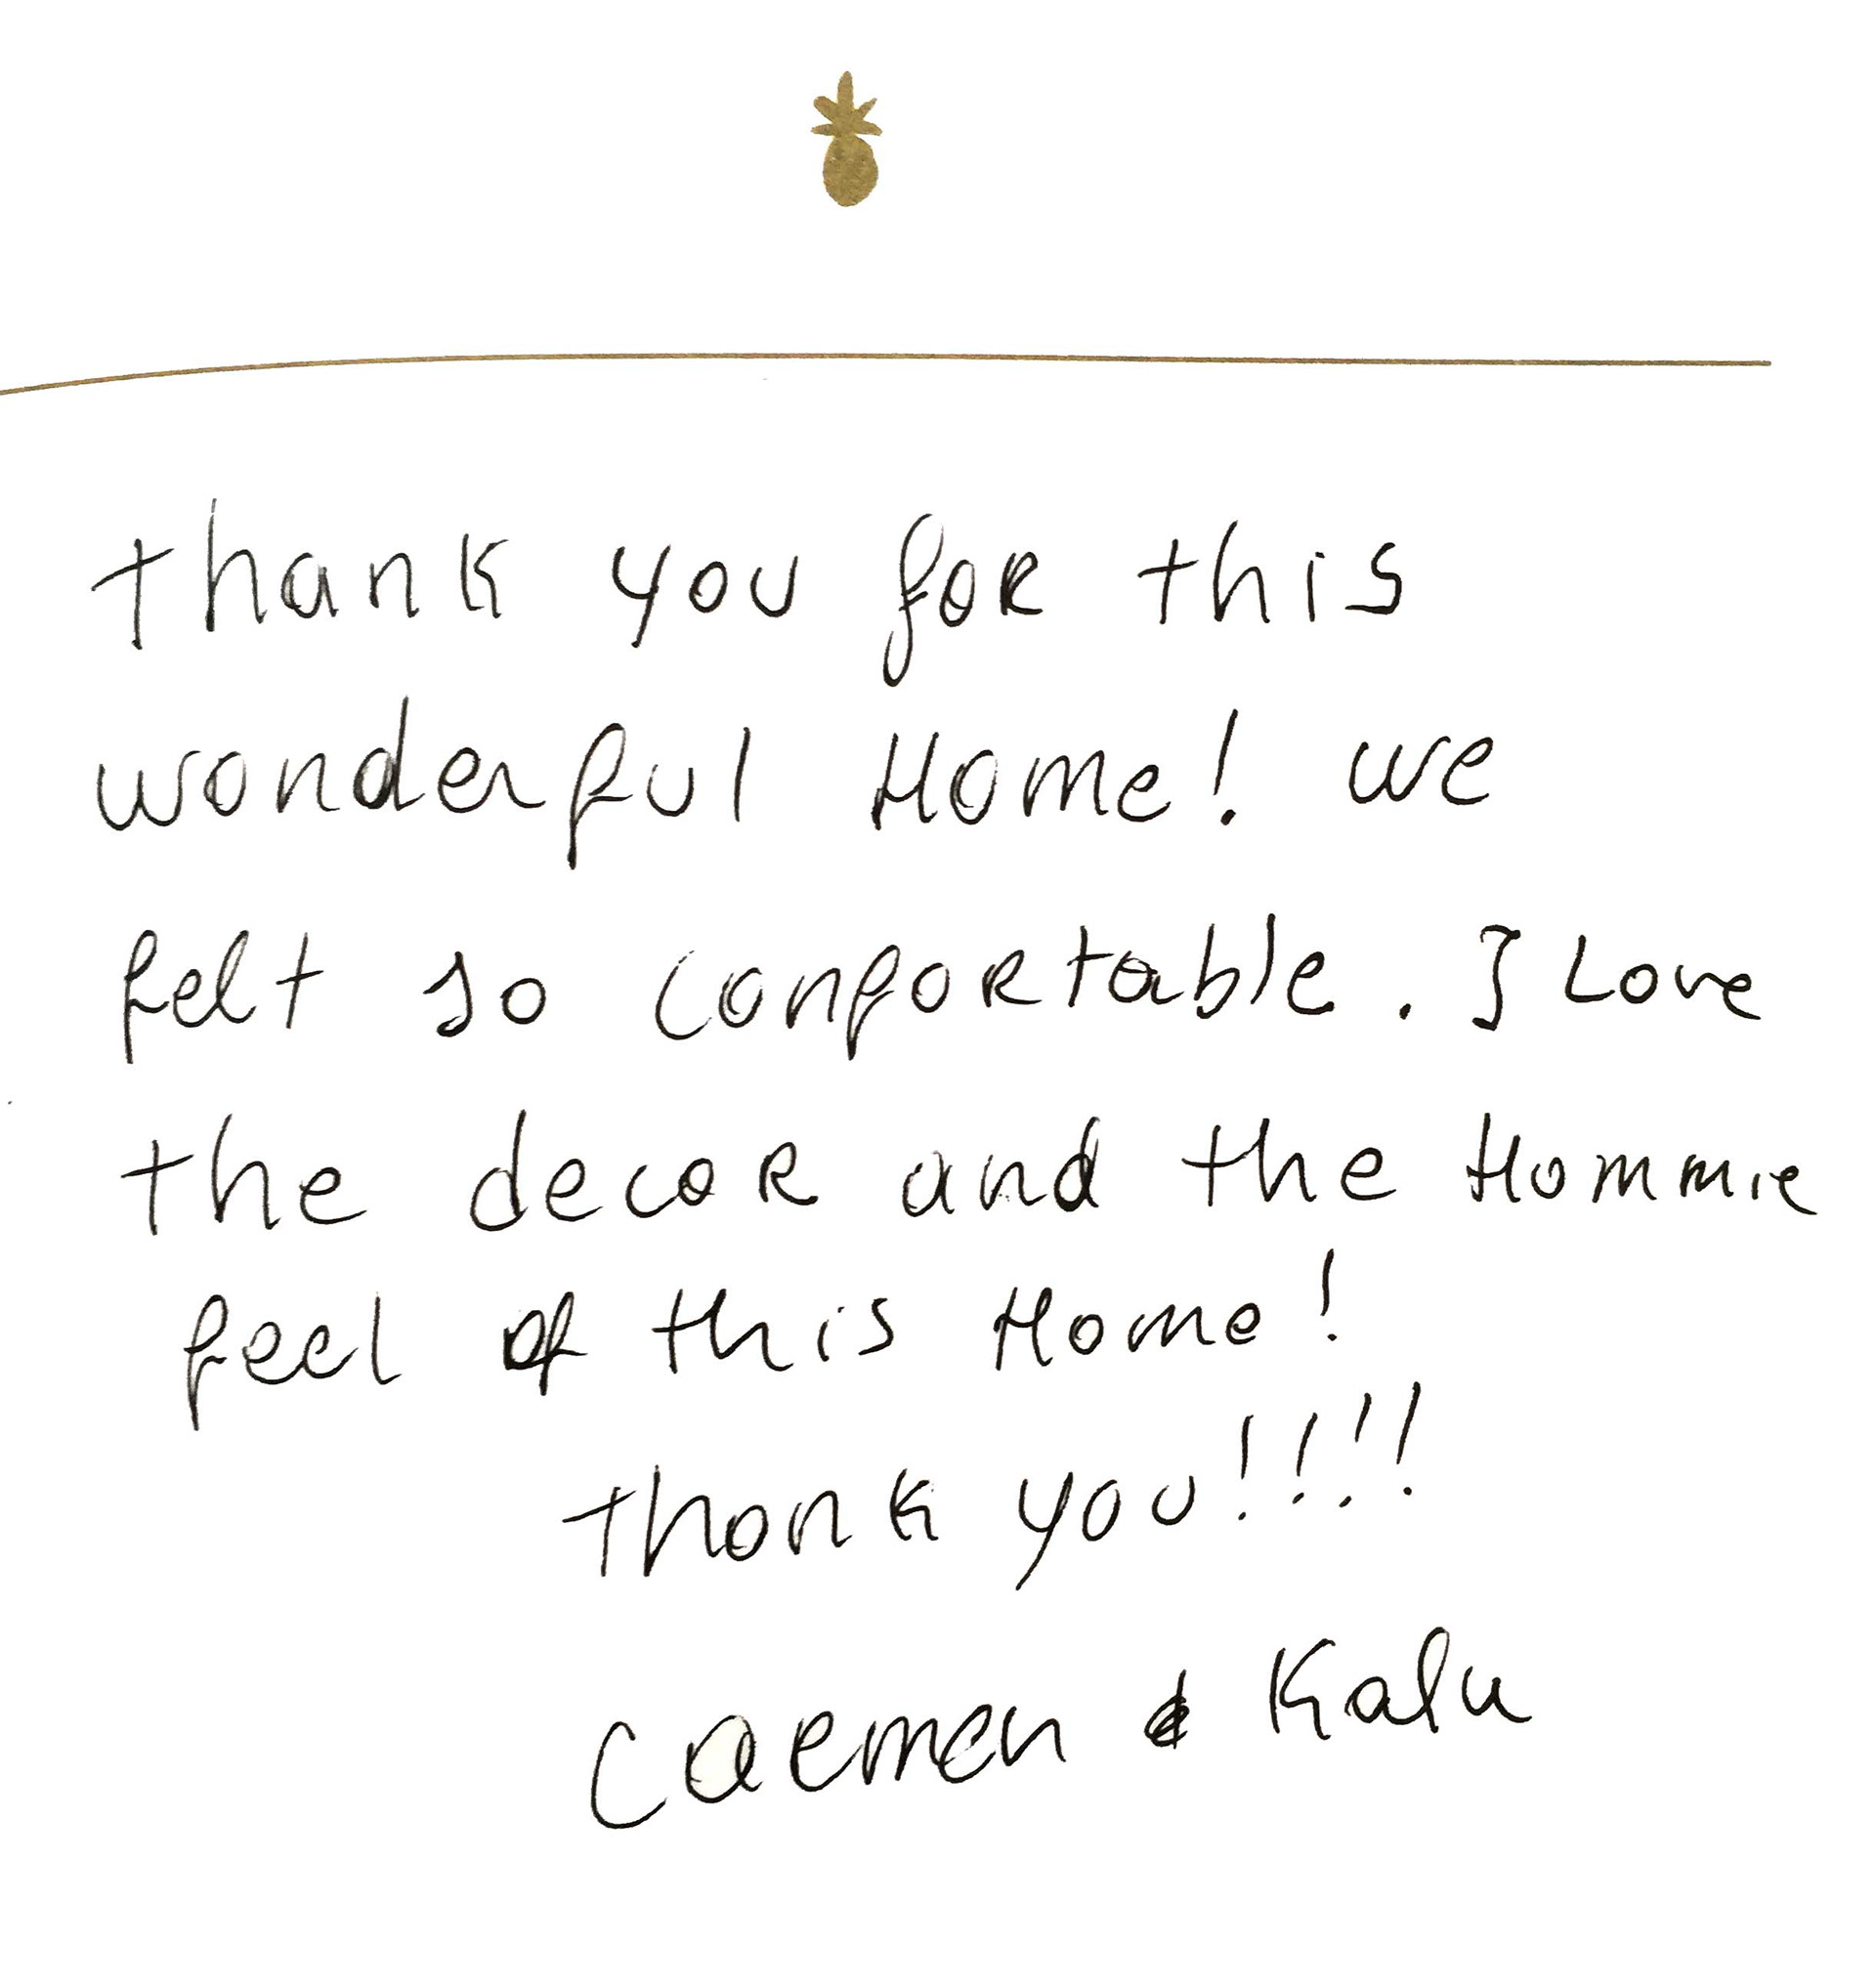 thank you for this
wonderful Home! we
felt so confortable. I Love
the decor and the Hommie
feel of this Home!
thank you!!!!
Carmen & Kalu